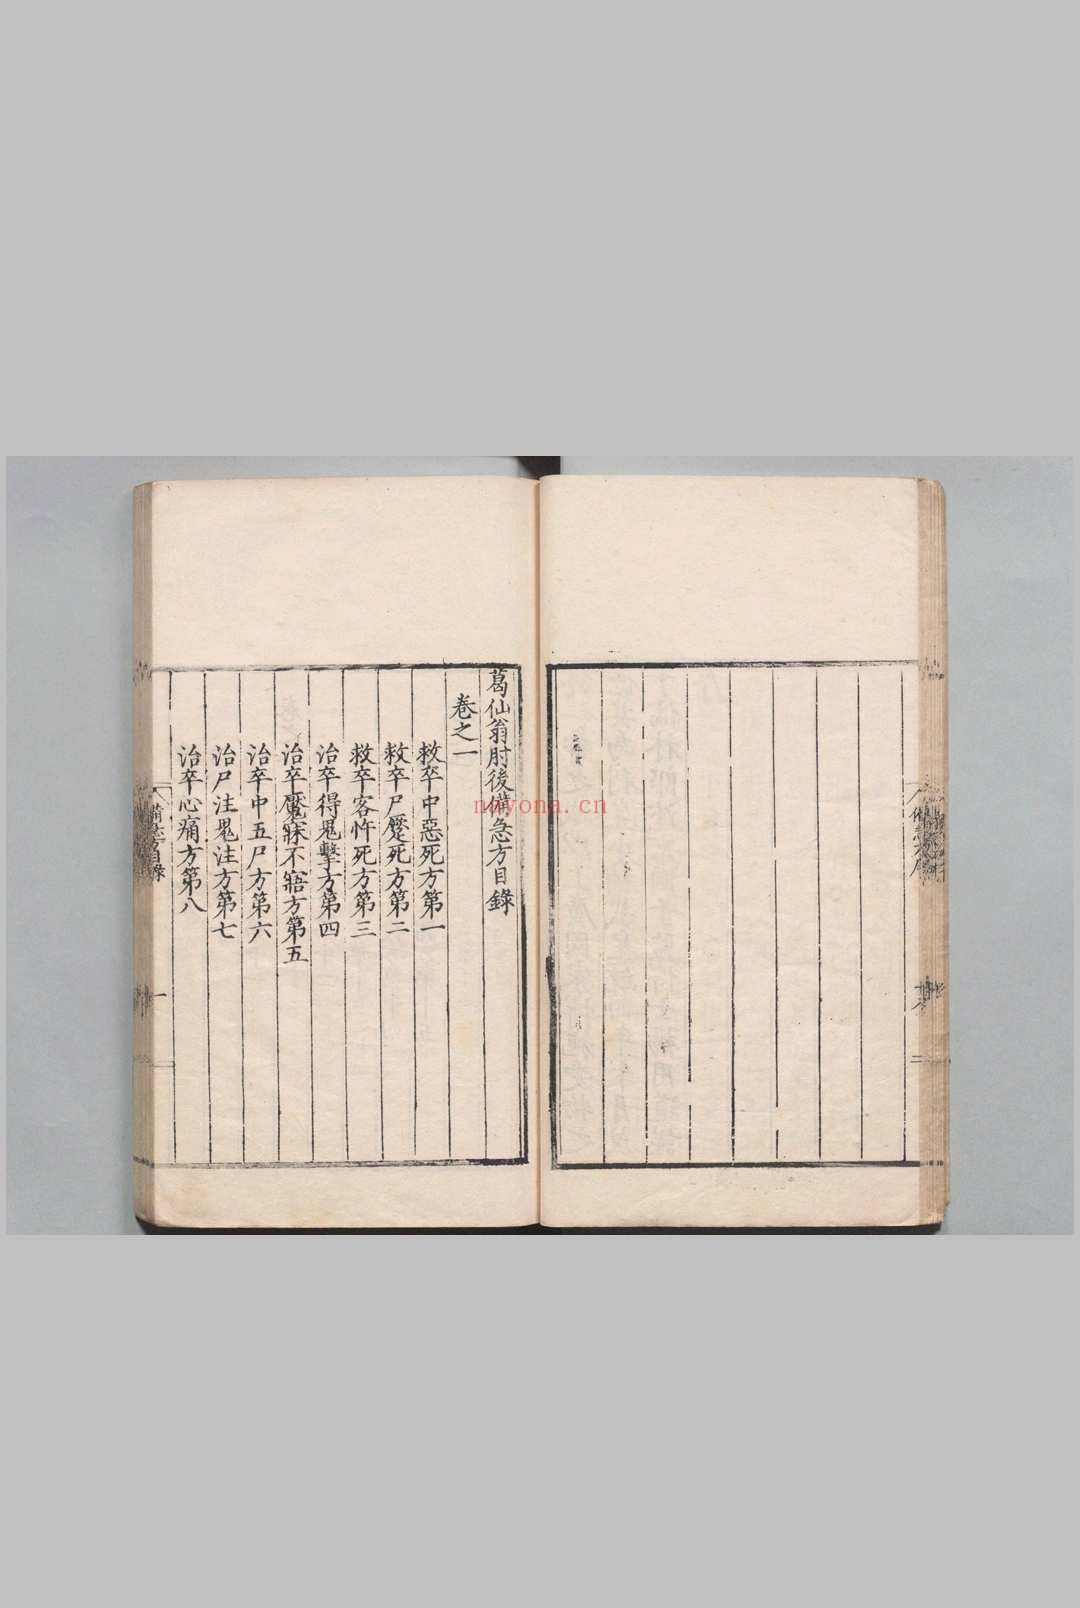 葛仙翁肘後備急方目錄
卷之一
救卒中惡死方第一
救卒尸蹷死方第二
救卒客忤死方第三
治卒得鬼擊方第四
治卒魘寐不寤方第五
治卒中五尸方第六
治尸注鬼注方第七
治卒心痛方第八
備急方目錄
一
nayona.cn